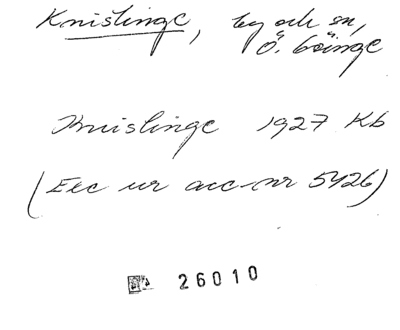 Knislinge, by och sn,
Ö. Göinge
Knislinge 1927 Kb
(Exc ur acc-nr 5426)
26010